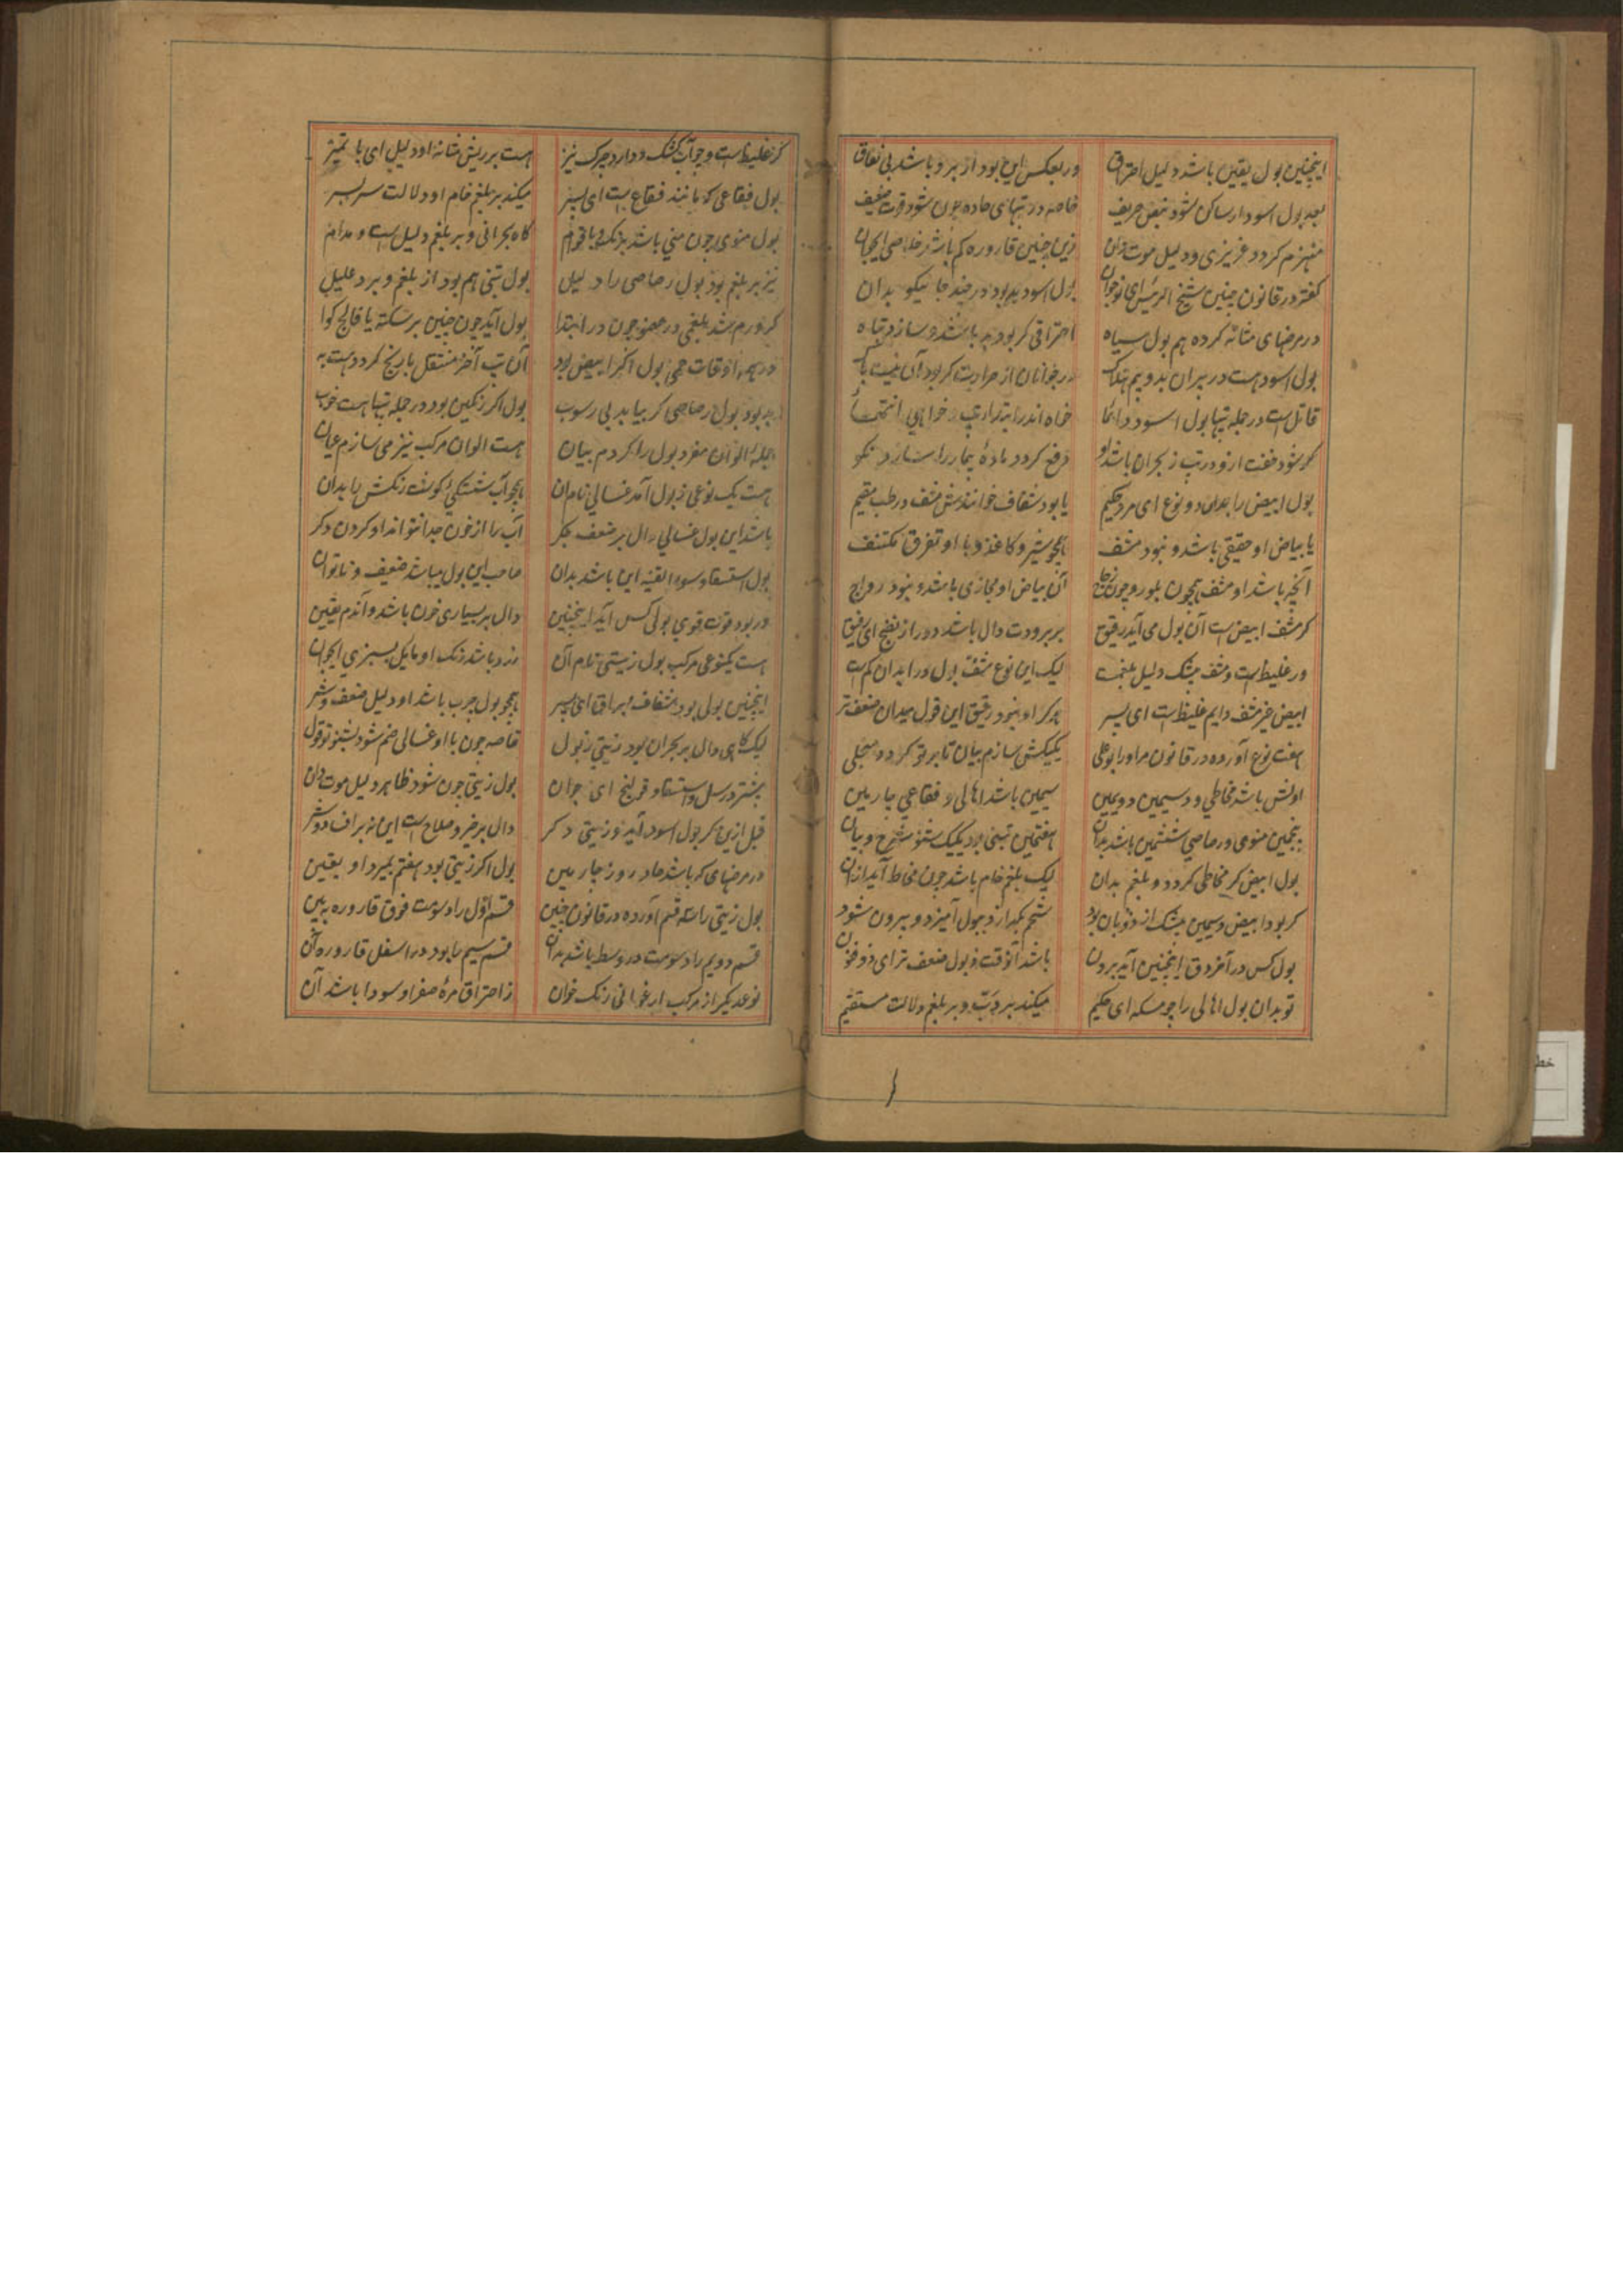 اینچنین بول یقین باشد دلیل احتراق ور بعکس این بود از برد باشد بی نفاق
بعد بول اسود ار ساکن شود تپش حریف خاصه در تبهای حاده چون شود قوت ضعیف
منهزم کردد غریزی ودلیل موت دان زین چنین قاروره کم باشد خلاصی ایجوان
کفته در قانون چنین شیخ الرئیس ای نوجوان بول اسود بد بود در چند جا نیکو بدان
در مرضهای مثانه کرده هم بول سیاه احتراقی کر بود بد باشد و سازد تباه
بول اسود هست در پیران بد و بیم هلاک در جوانان از حرارت کر بود آن نیست باک
قاتل است در جمله تبها بول اسود دائما خواه اندر ابتدا و خواهی انتها
کر شود خفت ازو در تب ز بحران باشد او دفع کردد مادهٔ بیمار را سازد نکو
بول ابیض را بدان دو نوع ای مرد حکیم یا بود شفاف خوانندش مشف در طب مقیم
یا بیاض او حقیقی باشد و نبود مشف همچو شیر و کاغذ و با او تفرق مکتنف
آنچه باشد او مشف همچون بلور و چون زجاج آن بیاض او مجازی باشد و نبود رواج
کر مشف ابیض است آن بول می آید رقیق بر برودت دال باشد دور از نضج ای رفیق
ور غلیظ است و مشف بیشک دلیل بلغمست لیک این نوع مشف بول در ابدان کم است
ابیض غیر مشف دایم غلیظ است ای پسر هرکز او نبود رقیق این قول میدان ضعف تر
هفت نوع آورده در قانون مر او را بوعلی یکیکش سازم بیان تا بر تو کردد منجلی
اولش باشد مخاطی و دسیمین دویمین سیمین باشد اهالی و فقاعی چارمین
پنجمین منوی و رصاصی ششمین باشد بدان هفتمین تبنی بود یکیک شنو شرح و بیان
بول ابیض کر مخاطی کردد و بلغم بدان لیک بلغم خام باشد چون مخاط آید ازان
کر بود ابیض دسیمین بیشک از ذوبان بود شحم بکدازد ببول آمیزد و بیرون شود
بول کس در آخر دق اینچنین آید برون باشد آنوقت ذبول ضعف تر ای ذوفنون
تو بدان بول اهالی را چو مسکه ای حکیم میکند بر دب و بر بلغم دلالت مستقیم
کر غلیظ است و چو آب کشک و دارد چرک نیز هست بر ریش مثانه او دلیل ای با تمیز
بول فقاعی که مانند فقاع است ای پسر میکند بر بلغم خام او دلالت سر بسر
بول منوی چون منی باشد برنک و با قوام کاه بحرانی و بر بلغم دلیل است و مدام
نیز بر بلغم بود بول رصاصی را دلیل بول تبنی هم بود از بلغم و برد علیل
کر ورم شد بلغمی در عضو چون در ابتدا بول آید چون چنین بر سکته یا فالج کوا
در همه اوقات حمی بول اکر ابیض بود آن تب آخر منتقل با ربع کردد هست بد
بد بود بول رصاصی کر بیاید بی رسوب بول اکر رنکین بود در جمله تبها هست خوب
جملهٔ الوان مفرد بول را کردم بیان هست الوان مرکب نیز می سازم عیان
هست یک نوعی ز بول آمد غسالی نام آن همچو آب شستکی کوشت رنکش را بدان
باشد این بول غسالی دال بر ضعف جکر آب را از خون جدا نتواند او کردن دکر
بول استسقا و سوء القنیه این باشد بدان صاحب این بول میباشد ضعیف و ناتوان
ور بود قوت قوی بولی کس آید اینچنین دال بر بسیاری خون باشد و آندم یقین
هست یکنوعی مرکب بول زیتی نام آن زرد باشد رنک او مایل بسبزی ایجوان
اینچنین بولی بود شفاف و براق ای پسر همچو بول چرب باشد او دلیل ضعف و شر
لیک کاهی دال بر بحران بود زیتی ز بول خاصه چون با او غسالی ضم شود بشنو تو قول
بیشتر در سل و استسقا و قولنج ای جوان بول زیتی چون شود ظاهر دلیل موت دان
قبل ازین کر بول اسود آید و زیتی دکر دال بر خیر و صلاح است این نه بر افساد و شر
در مرضهای که باشد حاد روز چارمین بول اکر زیتی بود هفتم بمیرد او یقین
بول زیتی را سه قسم آورده در قانون چنین قسم اول را دسومت فوق قاروره ببین
قسم دویم را دسومت در وسط باشد بدان قسم سیم را بود در اسفل قاروره آن
نوع دیکر از مرکب ارغوانی رنک خوان ز احتراق مرهٔ صفرا و سودا باشد آن